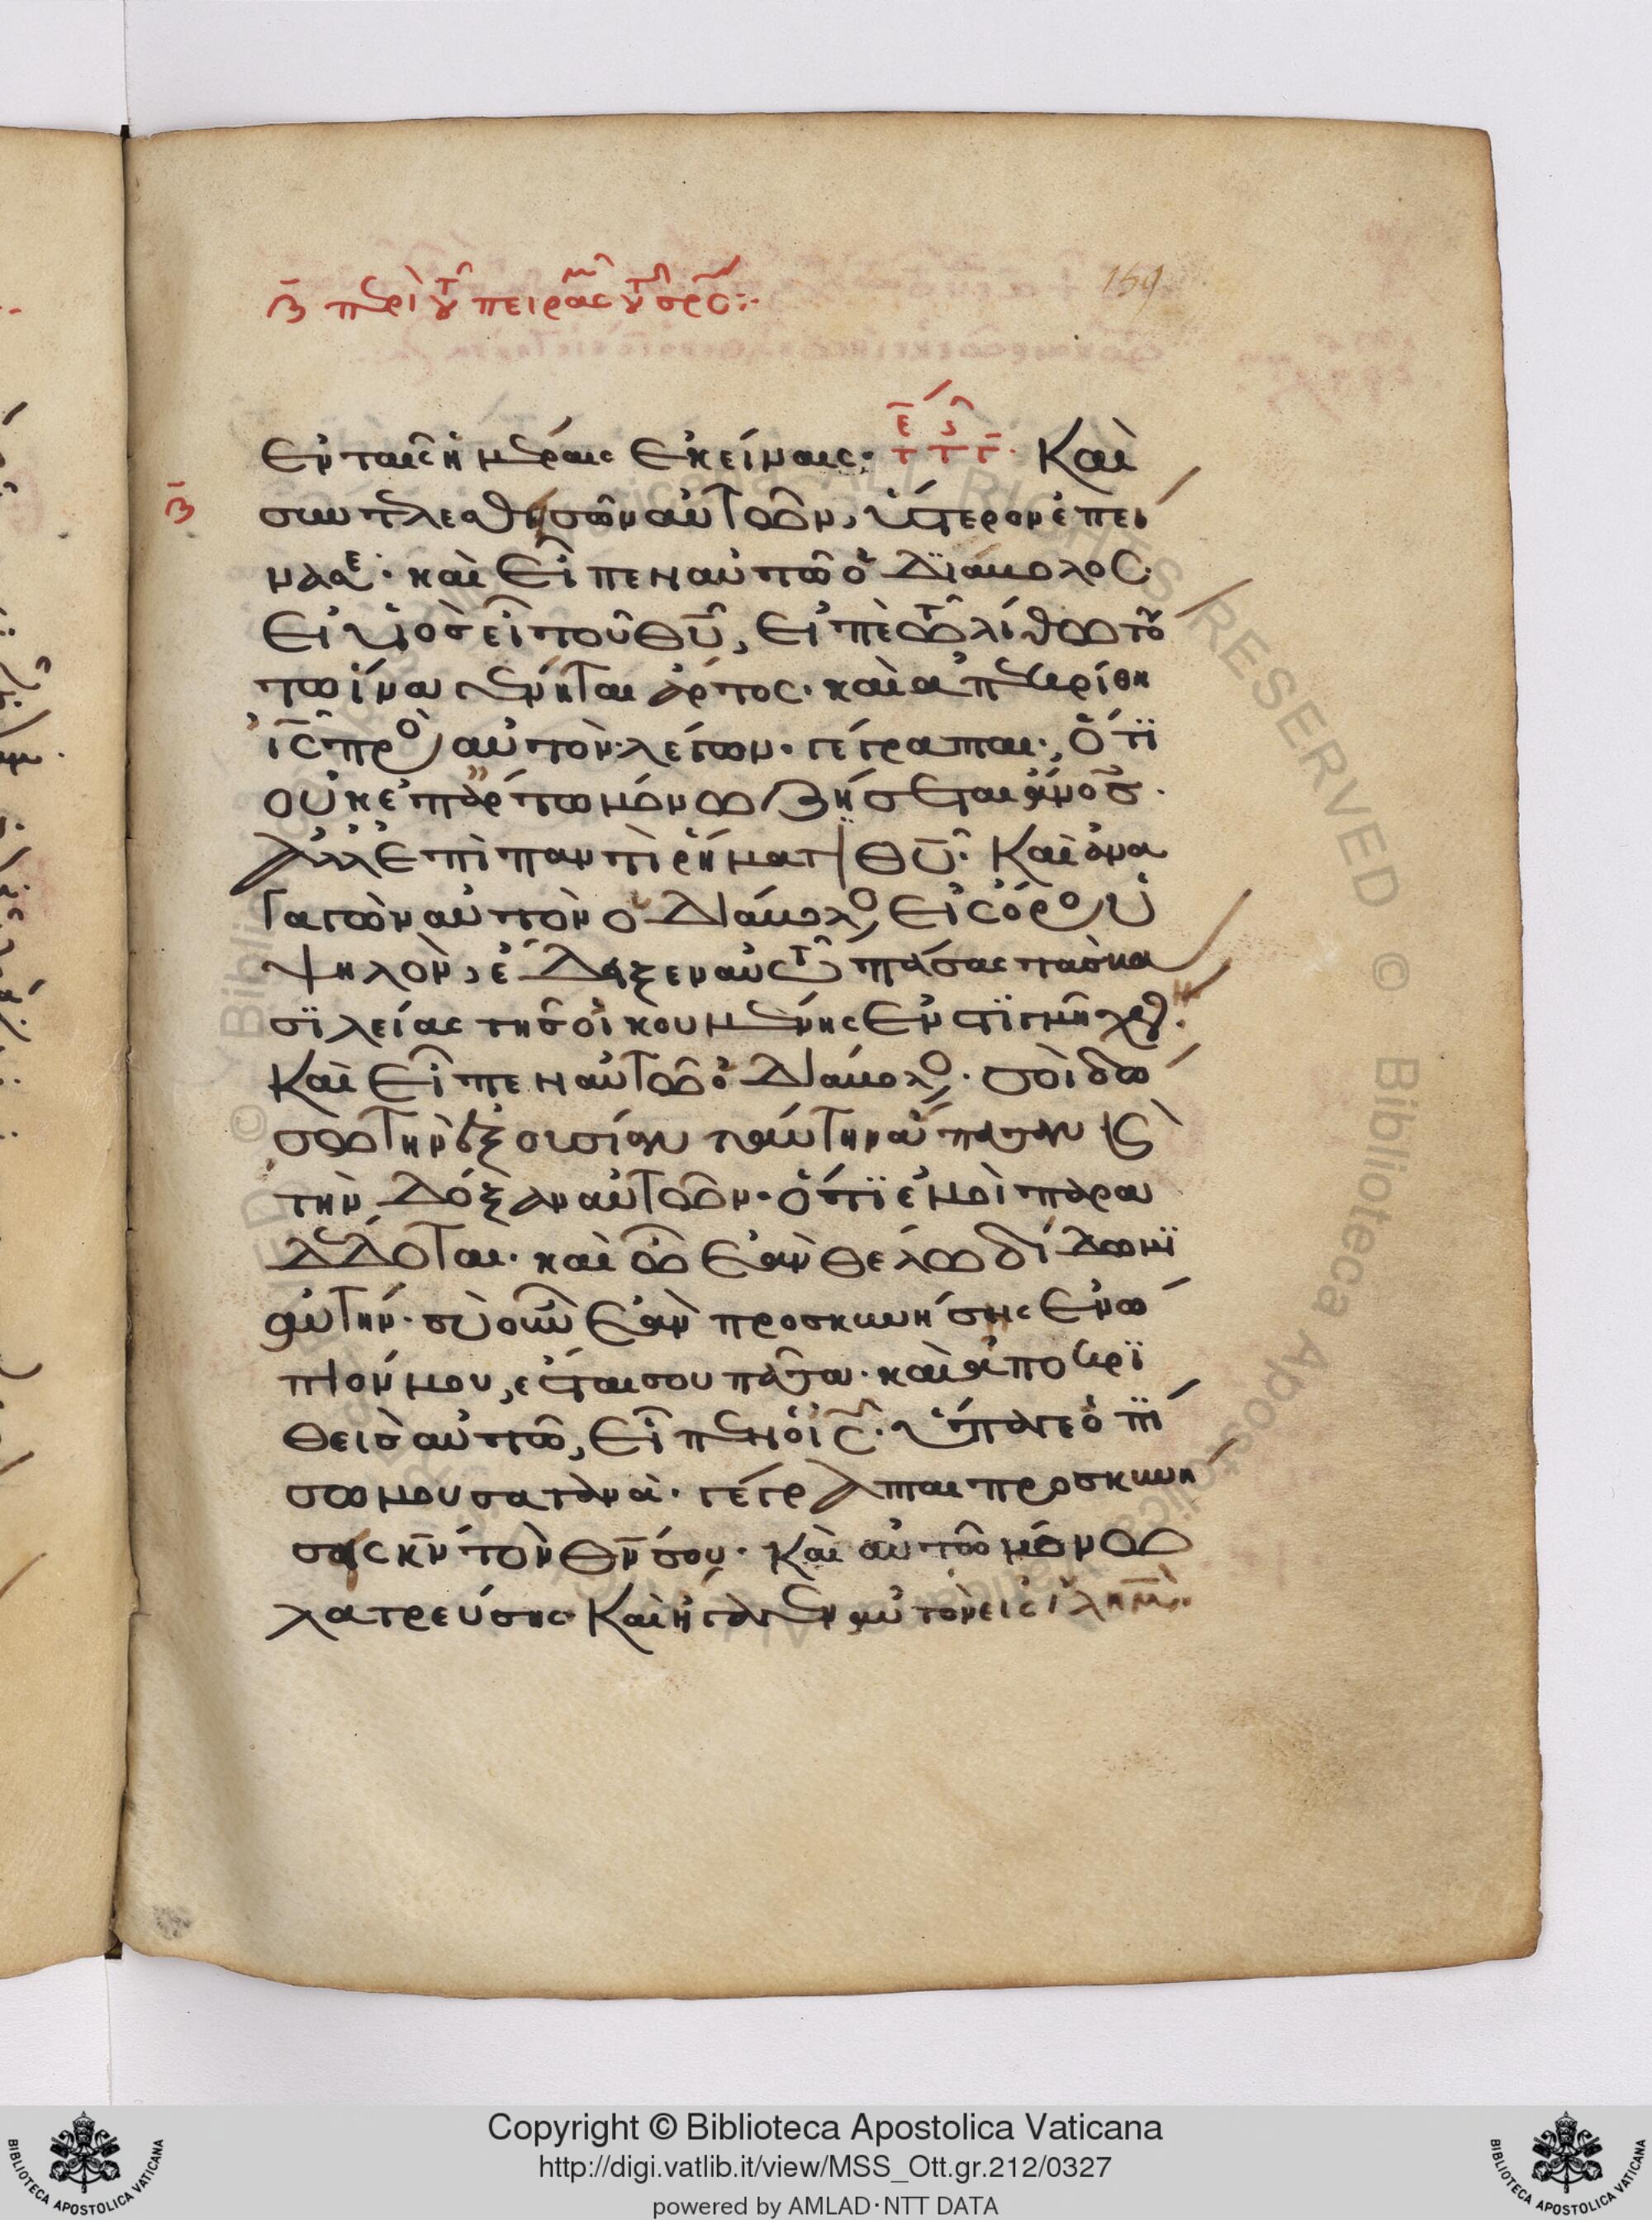 β̄ περὶ τοῦ πειρασμοῦ τοῦ σρ̅ς:·
159
ἐν ταῖς ἡμέραις ἐκείναις· Καὶ
β̄
συντελεσθησῶν αὐτῶν, ὕστερον ἐπεί
νασε· καὶ εἶπεν αὐτῶ ὁ διάβολος·
εἰ υἱὸς εἶ τοῦ θῡ, εἰπὲ τῶ λίθω τού
τω ἵνα γένηται ἄρτος· καὶ ἀπεκρίθη
ἰ̅ς̅ πρὸς αὐτὸν λέγων· γέγραπται, ὅτι
οὐκ ἐπ' ἄρτω μόνω ζήσεται ἄνος·
ἀλλ' ἐπὶ παντὶ ῥήματι θῡ· Καὶ ἀνα
γαγὼν αὐτὸν ὁ διάβολος εἰς ὄρος ὑ
ψηλὸν, ἔδειξεν αὐτῶ πάσας τὰς βα
σιλείας τῆς οἰκουμένης ἐν στιγμῆ χρ.
Καὶ εἶπεν αὐτῶ ὁ διάβολος· σοὶ δώ
σω τὴν ἐξουσίαν ταύτην ἅπασαν κ(αὶ)
τὴν δόξαν αὐτῶν· ὅτι ἐμοὶ παρα
δέδοται· καὶ ὧ ἐὰν θέλω δίδωμι
αὐτήν· σὺ οὖν ἐὰν προσκυνήσης ἐνώ
πιόν μου, ἔσται σου πάντα· καὶ ἀποκρι
θεὶς αὐτῶ, εἶπεν ὁ ἰ̅ς̅· ὕπαγε ὀπί
σω μου σατανᾶ· γέγραπται προσκυνή
σεις κν̅ τὸν θν̅ σου· Καὶ αὐτῶ μόνω
λατρεύσης· Καὶ ἤγαγεν αὐτὸν εἰς ἰλημ̅·
Copyright © Biblioteca Apostolica Vaticana
http://digi.vatlib.it/view/MSS_Ott.gr.212/0327
powered by AMLAD·NTT DATA